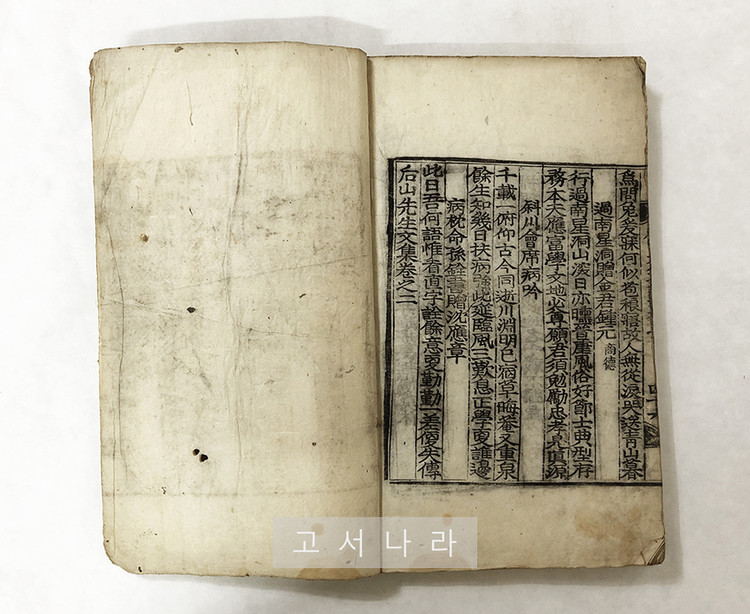 何似
故人無從淚哭送青山暮
過南星洞贈金君鍾元 商德
行過南星洞山日亦曛風俗好節士典型存
務本天應富學文地必尊願君須勉勵忠孝見眞源
斜川會席病吟
千載一俯仰古今同逝川淵明已病草晦菴又重泉
餘生知幾日扶病此筵臨風三歎息正學更誰邊
病枕命孫銓書贈沈應章
此日吾何語惟看直字詮餘意更勤勤一差便失傳
后山先生文集卷之二
고서나라